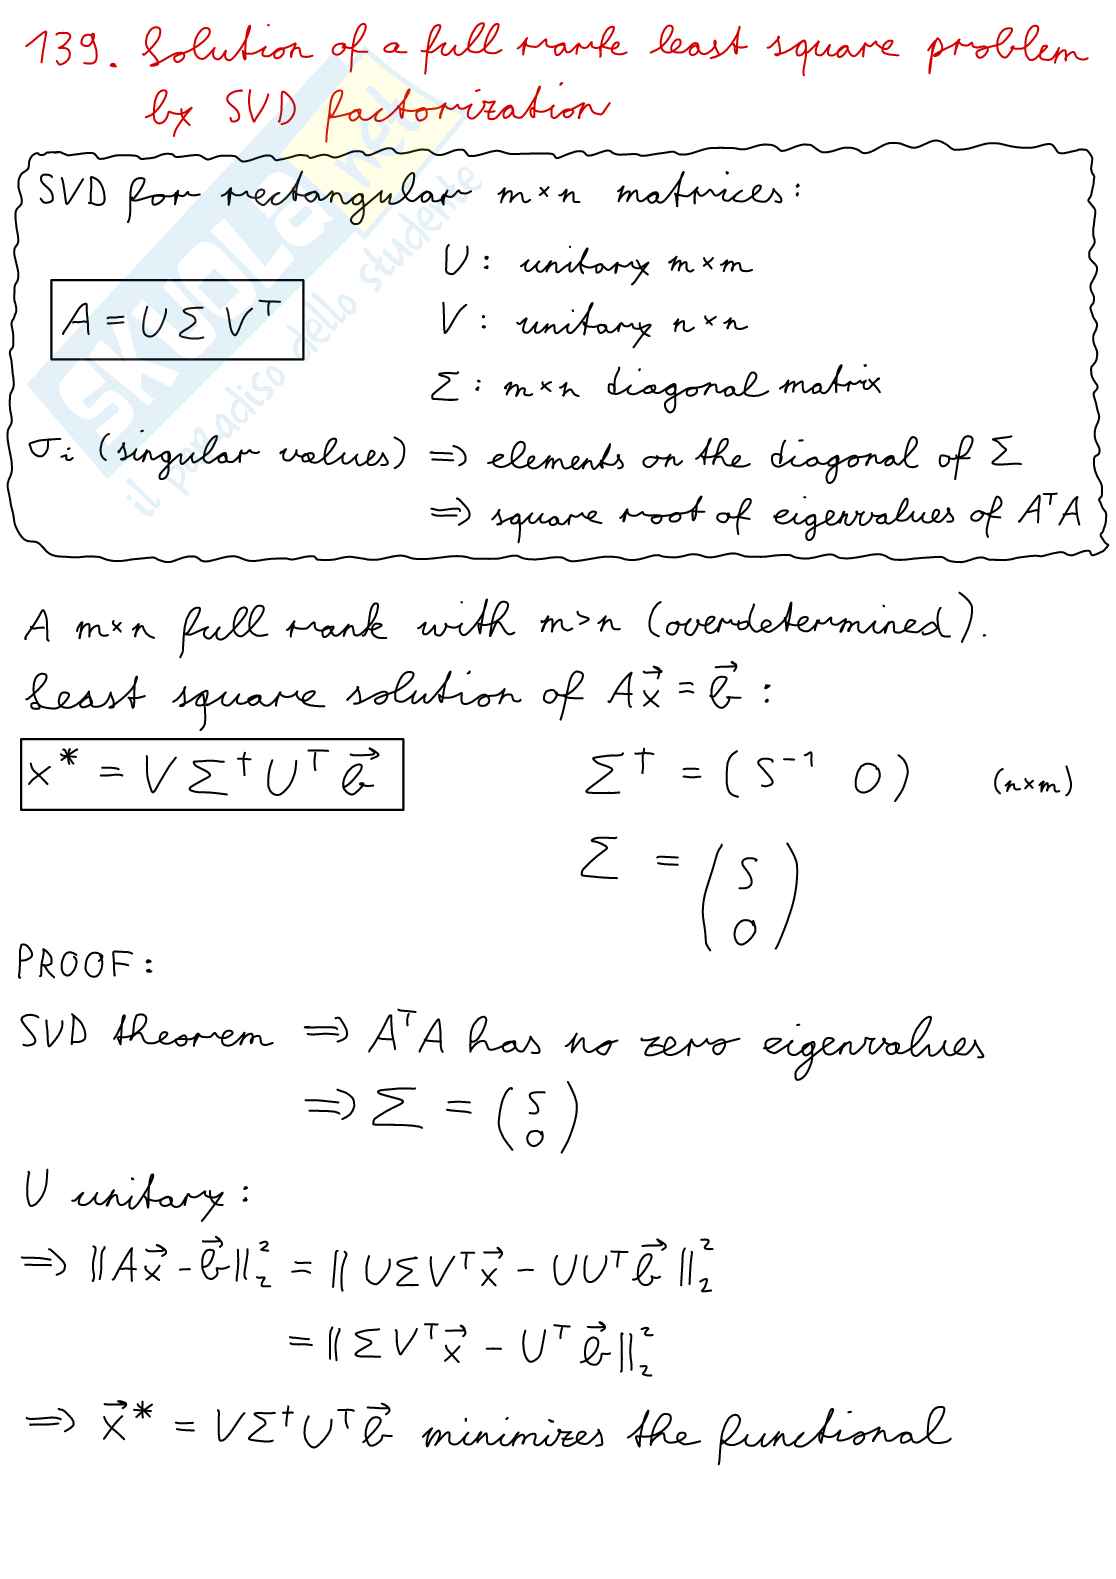 139. Solution of a full rank least square problem
by SVD factorization
SVD for rectangular m×n matrices:
U : unitary m×m
A = U Σ Vᵀ
V : unitary n×n
Σ : m×n diagonal matrix
σᵢ (singular values) ⇒ elements on the diagonal of Σ
⇒ square root of eigenvalues of AᵀA
A m×n full rank with m>n (overdetermined).
Least square solution of Ax⃗ = b⃗ :
x* = V Σ† Uᵀ b⃗
Σ† = (S⁻¹ 0) (n×m)
Σ = (S
0)
PROOF:
SVD theorem ⇒ AᵀA has no zero eigenvalues
⇒ Σ = (S
0)
U unitary:
⇒ ||Ax⃗ - b⃗||₂² = || UΣVᵀx⃗ - UUᵀb⃗ ||₂²
= || ΣVᵀx⃗ - Uᵀ b⃗ ||₂²
⇒ x⃗* = VΣ†Uᵀb⃗ minimizes the functional
SKUOLA.net
il paradiso dello studente